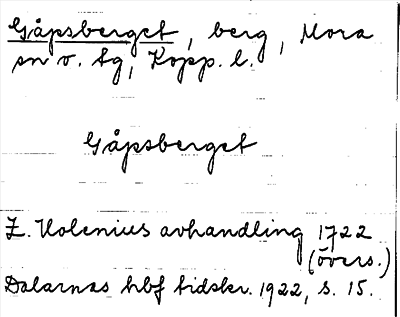 Gåpsberget, berg, Mora
sn o. tg, Kopp. l.
Gåpsberget
Z. Holenius avhandling 1722
(övers.)
Dalarnas hbf tidskr. 1922, s. 15.